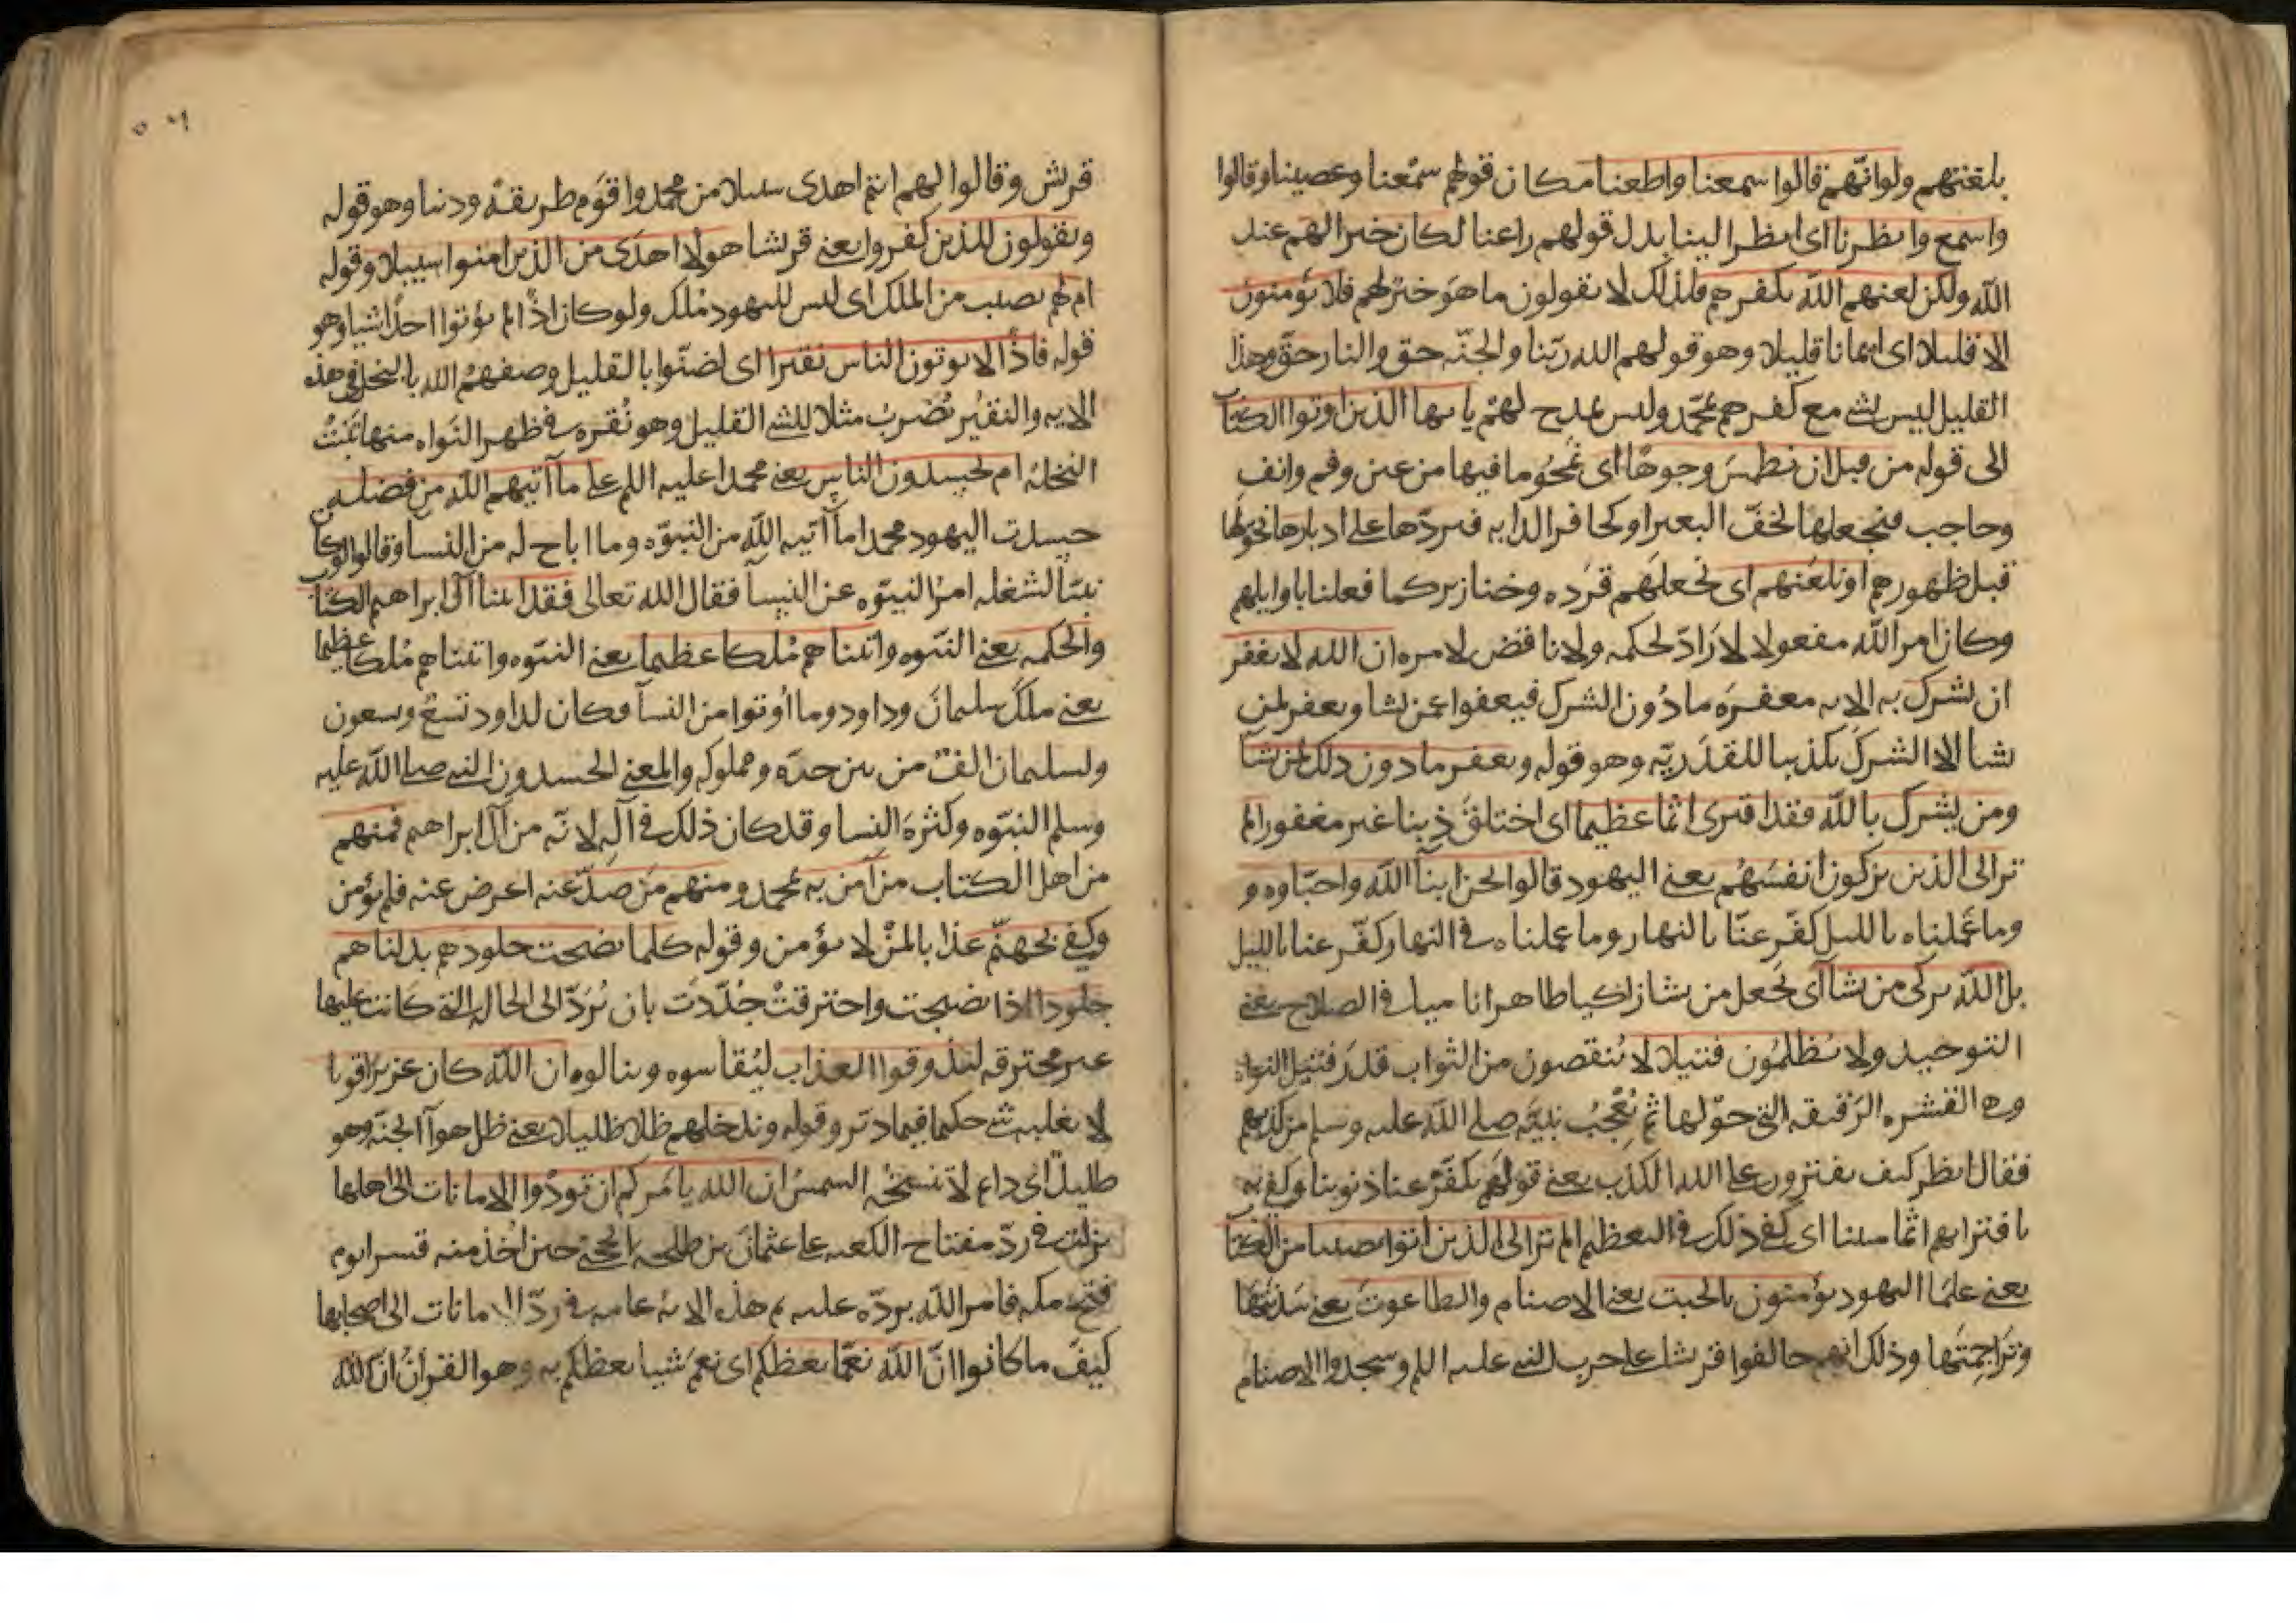 بلغتهم ولو انّهم قالوا سمعنا واطعنا مكان قولهم سمْعنا وعصينا وقالوا
واسمع وانظرنا اى انظر الينا بدل قولهم راعنا لكان خيرا لهم عند
الله ولكن لعنهم الله بكفرهم فلذلك لا يقولون ما هو خير لهم فلا يؤمنون
الا قليلا اى ايمانا قليلا وهو قولهم الله ربّنا والجنّه حق والنار حقّ وهذا
القليل ليس بشى مع كفرهم بمحمّد وليس بمدح لهم يا يها الذين اوتوا الكتاب
الى قوله من قبل ان نطمسَ وجوهًا اى نمحُو ما فيها من عين وفم وانف
وحاجب فنجعلها كخفّ البعير او كحافر الدابه فنردّها على ادبارها نحولها
قبل ظهورهم او نلعنهم اى نجعلهم قرَده وخنازير كما فعلنا باوايلهم
وكان امر الله مفعولا لا رَادّ لحكمه ولا ناقض لامره ان الله لا يغفر
ان يشرك به الايه مغفرَه ما دُون الشرك فيعفوا عمن يشا ويغفر لمن
يشا الا الشركَ تكذيبا للقدَريّه وهو قوله ويغفر ما دون ذلك لمن يشا
ومن يشرك بالله فقد افترى اثما عظيما اى اختلقَ ذنبا غير مغفور الم
تر الى الذين يزكون انفسَهُم يعنى اليهود قالوا نحن ابنآ الله واحبّاوه و
وما عَملناه بالليل كفّر عنّا بالنهار وما عملناه فى النهار كفّر عنا بالليل
بل الله يزكى من يشآ اى نجعل من يشا زاكيا طاهرا ناميا فى الصلاح يعنى
التوحيد ولا يُظلمُون فتيلا لا يُنقصون من الثواب قدَر فتيل النواه
وهى القشره الرَقيقه التى حوّلها ثم يُعْجبُ نبيّه صلى الله عليه وسلم من كذبهم
فقال انظر كيف يفترون على الله الكذب يعنى قولهم يكفّر عنا ذنوبنا وكفى به
بافترايهم اثما مبينا اى كفى ذلك فى التعظيم الم تر الى الذين اتوا نصيبا من الكتاب
يعنى علمَا اليهود يؤمنون بالجبت يعنى الاصنام والطاغوت يعنى سَدنتها
وتَراجمتها وذلك انهم حالفوا قريشا على حرب النبى عليه السلم وسجدوا الاصنام
٥٦
قريش وقالوا لهم انتم اهدى سبيلا من محمد واقوَم طريقةً ودينا وهو قوله
ويقولون للذين كفروا يعنى قريشا هولا اهدَى من الذين امنوا سبيلا وقوله
ام لهم نصيب من الملك اى ليس لليهود مُلك ولو كان اذًا لم يؤتوا احدًا شيا وهو
قوله فاذًا لا يوتون الناس نقيرا اى لضنّوا بالقليل وصفهمُ الله بالبخل فى هذه
الايه والنقيُر يُضربُ مثلا للشى القليل وهو نُقره فى ظهر النَواه منها تنبُتُ
النخلة ام يحسدون الناس يعنى محمدا عليه السلم على ما آتيهم الله من فضله
حسدت اليهود محمدا ما آتيه الله من النبوّه وما اباح له من النسا وقالوا لو كان
نبيّا لشغله امرُ النبوّه عن النسآ فقال الله تعالى فقد اتينا آل ابراهيم الكتاب
والحكمه يعنى النبّوه واتيناهم مُلكا عظيما يعنى النبّوه واتيناهم مُلكا عظيما
يعنى ملكَ سليمانَ وداود وما اُوتوا من النسآ فكان لداود تسعٌ وتسعون
ولسليمان الفٌ من بين حرّه ومملوكه والمعنى الحسدون النبى صلى الله عليه
وسلم النبّوه وكثرة النسا وقد كان ذلك فى آله لانّه من آل ابراهيم فمنهم
من اهل الكتاب من آمن به بمحمد ومنهم مَن صدّ عنه اعرض عنه فلم يؤمن
وكفى بجهنّم عذابا لمنْ لا يؤمن وقوله كلما نضجت جلودهم بدلناهم
جلودا اذا نضجت واحترقتْ جُدّدت بان تُرَدّ الى الحاله التى كانت عليها
غير محترقه ليذوقوا العذاب ليُقاسوه وينالوه ان الله كان عزيزا قويا
لا يغلبه شى حكيما فيما دبّر وقوله وندخلهم ظلا ظليلا يعنى ظل هوآ الجنّه وهو
ظليل اى دايم لا تنسخُه الشمسُ ان الله يامَركم ان تودُوا الامانات الى اهلها
نزلت فى ردّ مفتاح الكعبه على عثمان بن طلحه الحجبى حين اُخذ منه قسرا يوم
فتح مكه فامر الله بردّه عليه ثم هذه الايه عامه فى ردّ الامانات الى اصحابها
كيفَ ما كانوا انّ الله نعمّا يعظكم اى نعمَ شيا يعظكم به وهو القرآنُ انّ الله